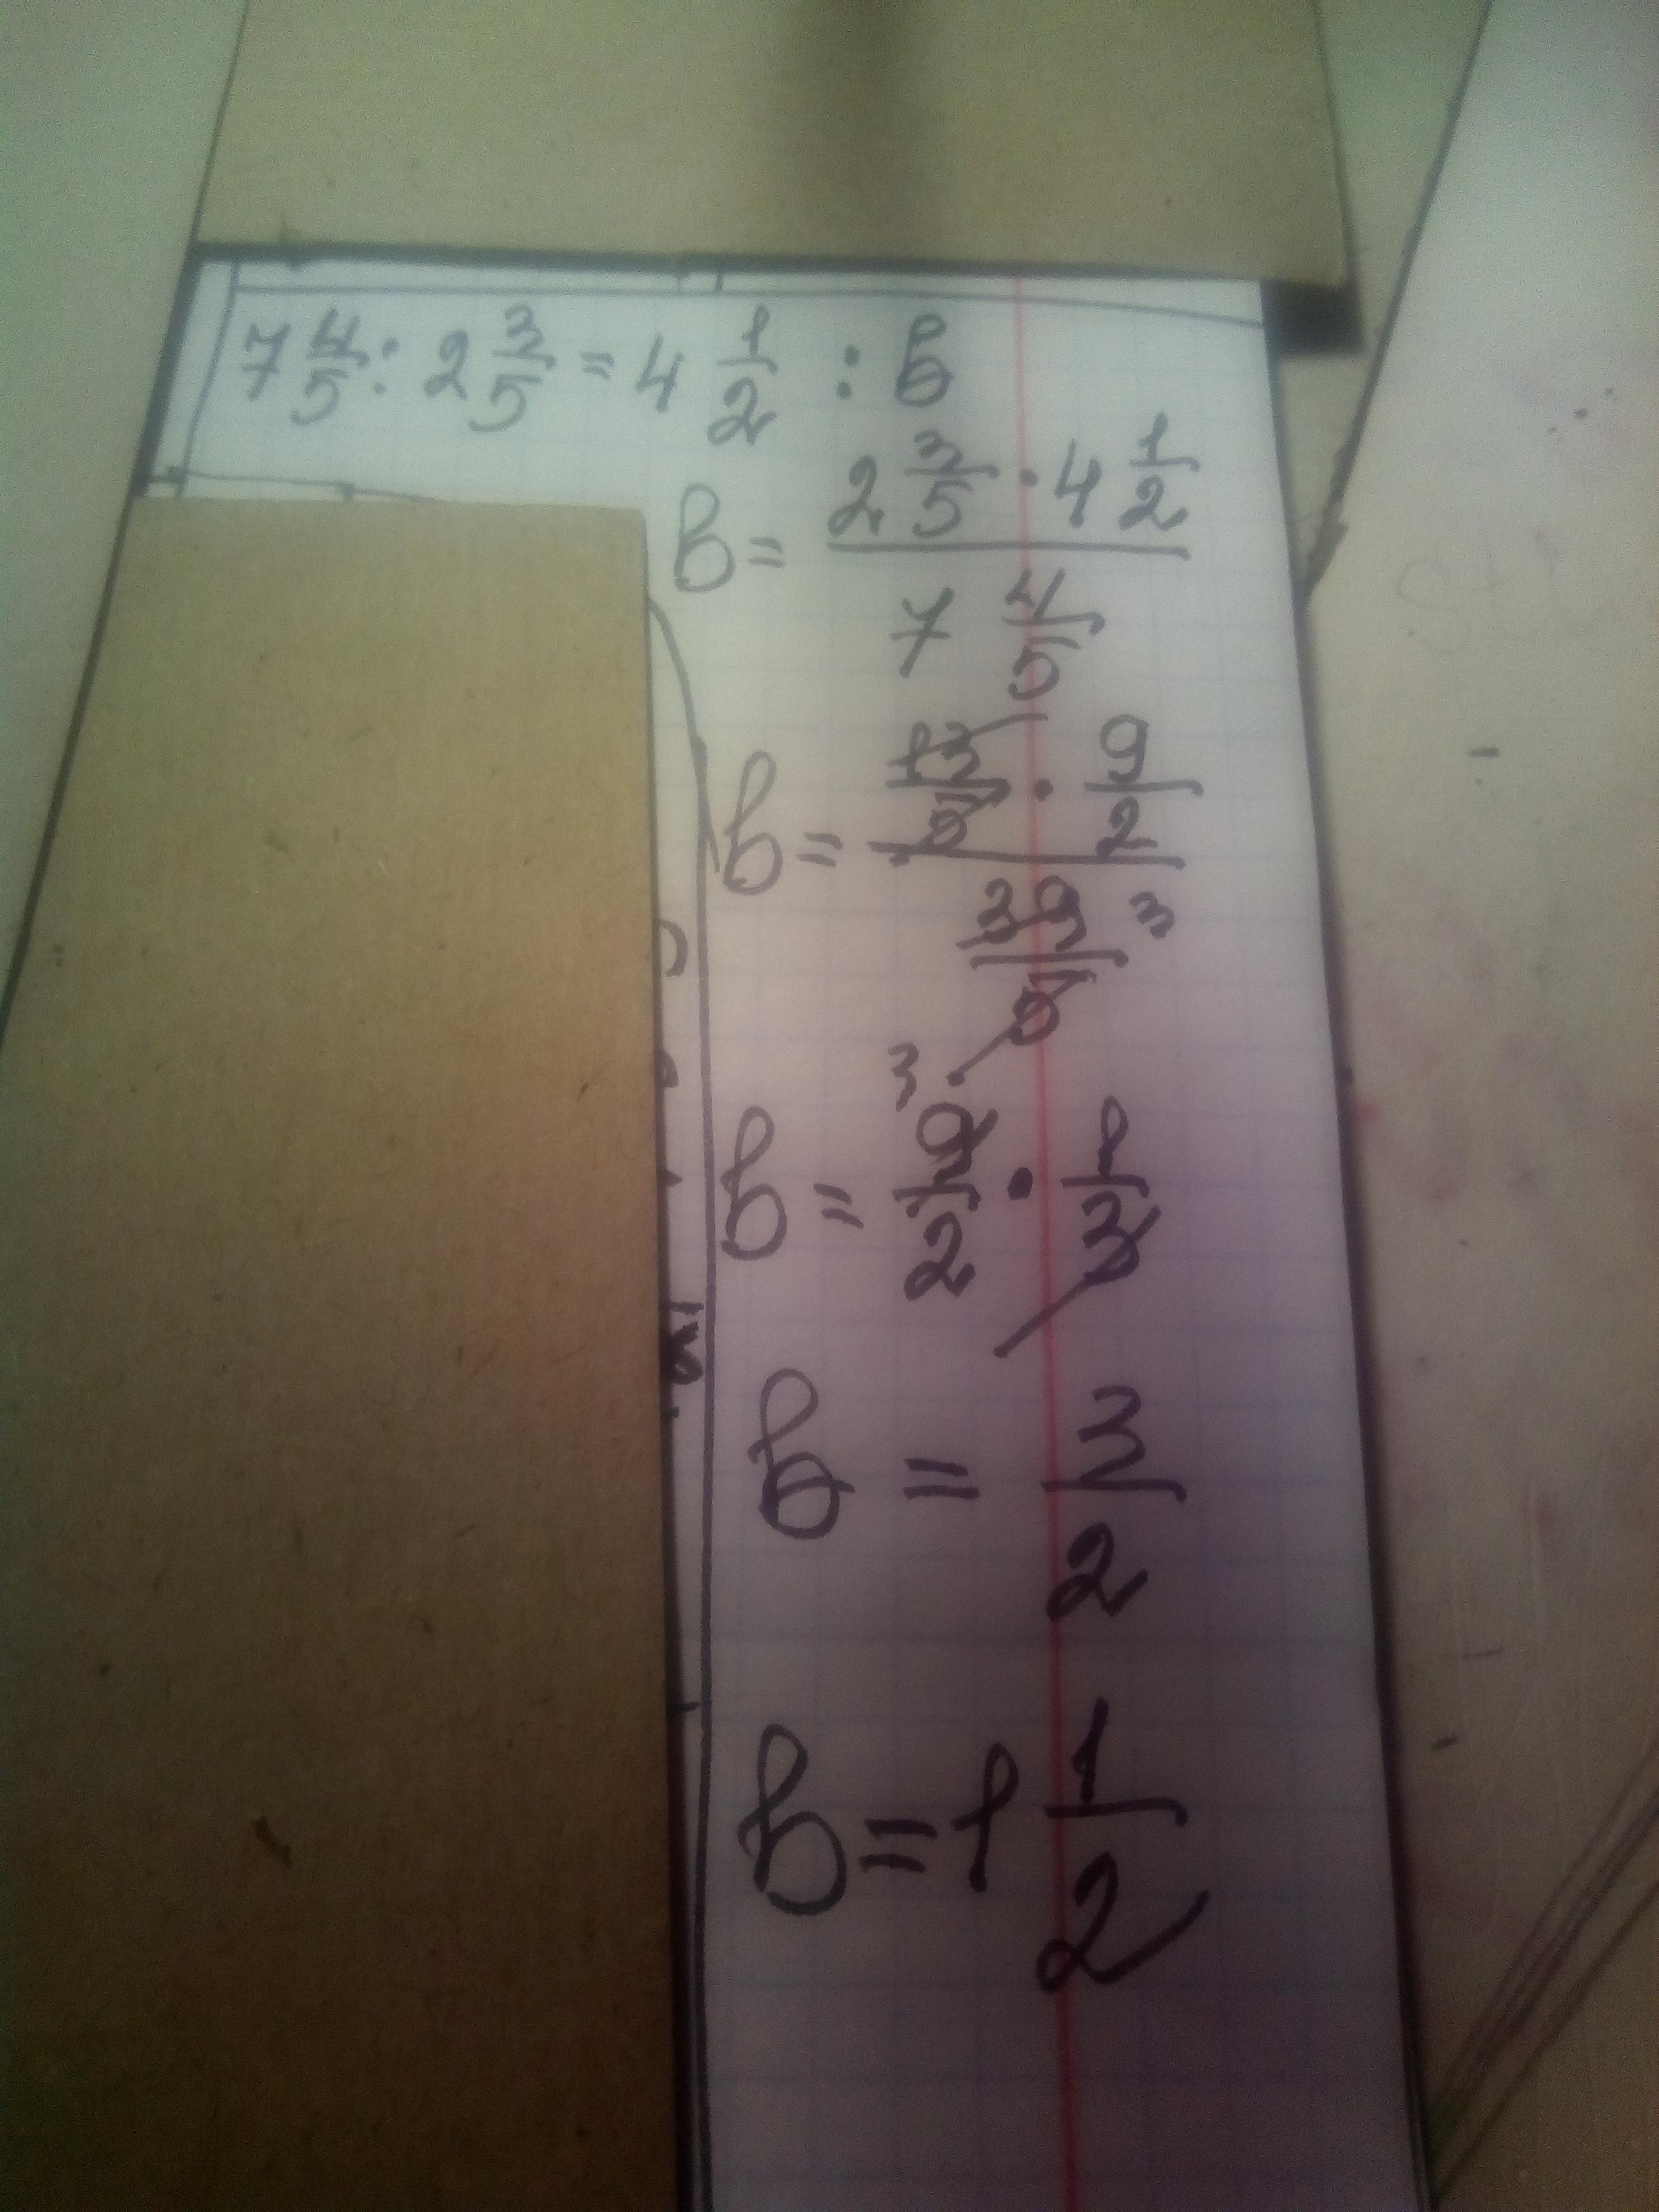 7 4/5 : 2 3/5 = 4 1/2 : в
в = (2 3/5 · 4 1/2) / (7 4/5)
в = (13/5 · 9/2) / (39/5) 3
в = 3 9/2 · 1/3
в = 3/2
в = 1 1/2